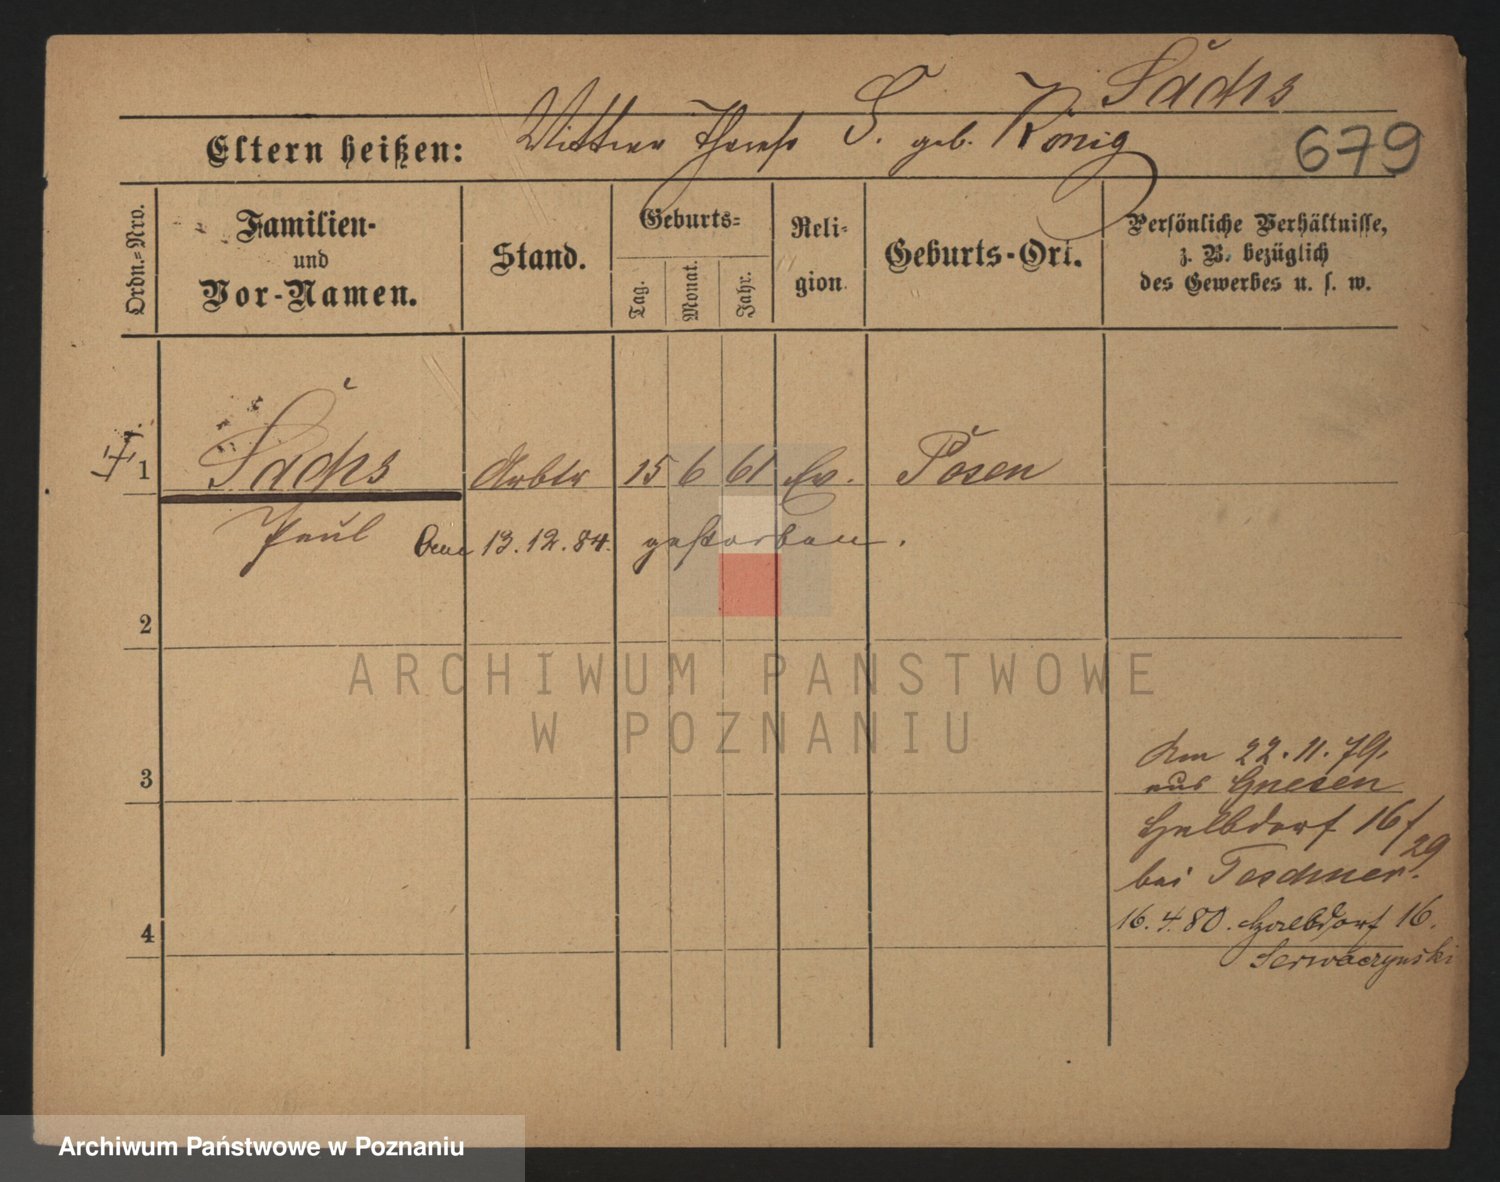 Sachs
679
Eltern heißen: Wittwe Therese S. geb. König
Ordn.-Nro.
Familien-
und
Vor-Namen.
Stand.
Geburts-
Tag.
Monat.
Jahr.
Reli-
gion
Geburts-Ort.
Persönliche Verhältnisse,
z. B. bezüglich
des Gewerbes u. s. w.
1 Sachs Arbtr 15 6 61 Ev. Posen
Paul Am 13.12.84. gestorben.
2
3
4
Am 22.11.79.
aus Gnesen
Halbdorf 16/29
bei Teschner.
16.4.80. Halbdorf 16.
Serwaczynski
ARCHIWUM PANSTWOWE
W POZNANIU
Archiwum Państwowe w Poznaniu